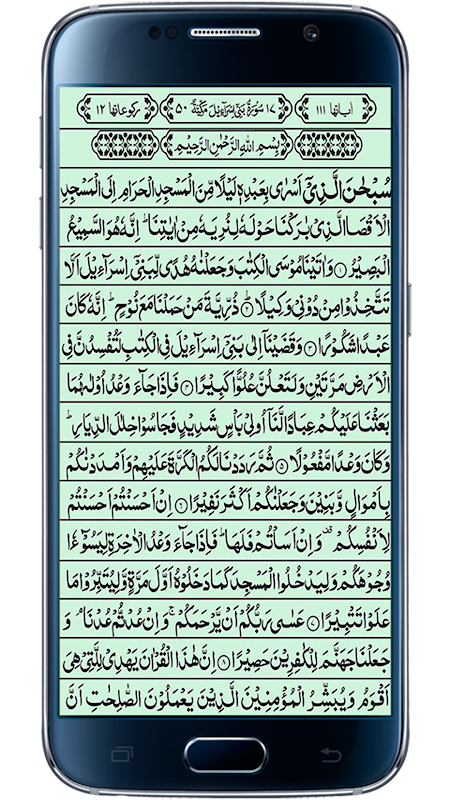 اٰیاتها ١١١ ١٧ سُوْرَةُ بَنِیْۤ اِسْرَآءِیْلَ مَكِّیَّةٌ ٥٠ ركوعاتها ١٢
بِسْمِ اللّٰهِ الرَّحْمٰنِ الرَّحِیْمِ
سُبْحٰنَ الَّذِیْۤ اَسْرٰی بِعَبْدِهٖ لَیْلًا مِّنَ الْمَسْجِدِ الْحَرَامِ اِلَی الْمَسْجِدِ
الْاَقْصَا الَّذِیْ بٰرَكْنَا حَوْلَهٗ لِنُرِیَهٗ مِنْ اٰیٰتِنَا ؕ اِنَّهٗ هُوَ السَّمِیْعُ
الْبَصِیْرُ ۝١ وَاٰتَیْنَا مُوْسَی الْكِتٰبَ وَجَعَلْنٰهُ هُدًی لِّبَنِیْۤ اِسْرَآءِیْلَ اَلَّا
تَتَّخِذُوْا مِنْ دُوْنِیْ وَكِیْلًا ۝٢ ذُرِّیَّةَ مَنْ حَمَلْنَا مَعَ نُوْحٍ ؕ اِنَّهٗ كَانَ
عَبْدًا شَكُوْرًا ۝٣ وَقَضَیْنَاۤ اِلٰی بَنِیْۤ اِسْرَآءِیْلَ فِی الْكِتٰبِ لَتُفْسِدُنَّ فِی
الْاَرْضِ مَرَّتَیْنِ وَلَتَعْلُنَّ عُلُوًّا كَبِیْرًا ۝٤ فَاِذَا جَآءَ وَعْدُ اُوْلٰىهُمَا
بَعَثْنَا عَلَیْكُمْ عِبَادًا لَّنَاۤ اُولِیْ بَاْسٍ شَدِیْدٍ فَجَاسُوْا خِلٰلَ الدِّیَارِ ؕ
وَكَانَ وَعْدًا مَّفْعُوْلًا ۝٥ ثُمَّ رَدَدْنَا لَكُمُ الْكَرَّةَ عَلَیْهِمْ وَاَمْدَدْنٰكُمْ
بِاَمْوَالٍ وَّبَنِیْنَ وَجَعَلْنٰكُمْ اَكْثَرَ نَفِیْرًا ۝٦ اِنْ اَحْسَنْتُمْ اَحْسَنْتُمْ
لِاَنْفُسِكُمْ ۫ وَاِنْ اَسَاْتُمْ فَلَهَا ؕ فَاِذَا جَآءَ وَعْدُ الْاٰخِرَةِ لِیَسُوْٓءٗا
وُجُوْهَكُمْ وَلِیَدْخُلُوا الْمَسْجِدَ كَمَا دَخَلُوْهُ اَوَّلَ مَرَّةٍ وَّلِیُتَبِّرُوْا مَا
عَلَوْا تَتْبِیْرًا ۝٧ عَسٰی رَبُّكُمْ اَنْ یَّرْحَمَكُمْ ۚ وَاِنْ عُدْتُّمْ عُدْنَا ۘ وَ
جَعَلْنَا جَهَنَّمَ لِلْكٰفِرِیْنَ حَصِیْرًا ۝٨ اِنَّ هٰذَا الْقُرْاٰنَ یَهْدِیْ لِلَّتِیْ هِیَ
اَقْوَمُ وَیُبَشِّرُ الْمُؤْمِنِیْنَ الَّذِیْنَ یَعْمَلُوْنَ الصّٰلِحٰتِ اَنَّ